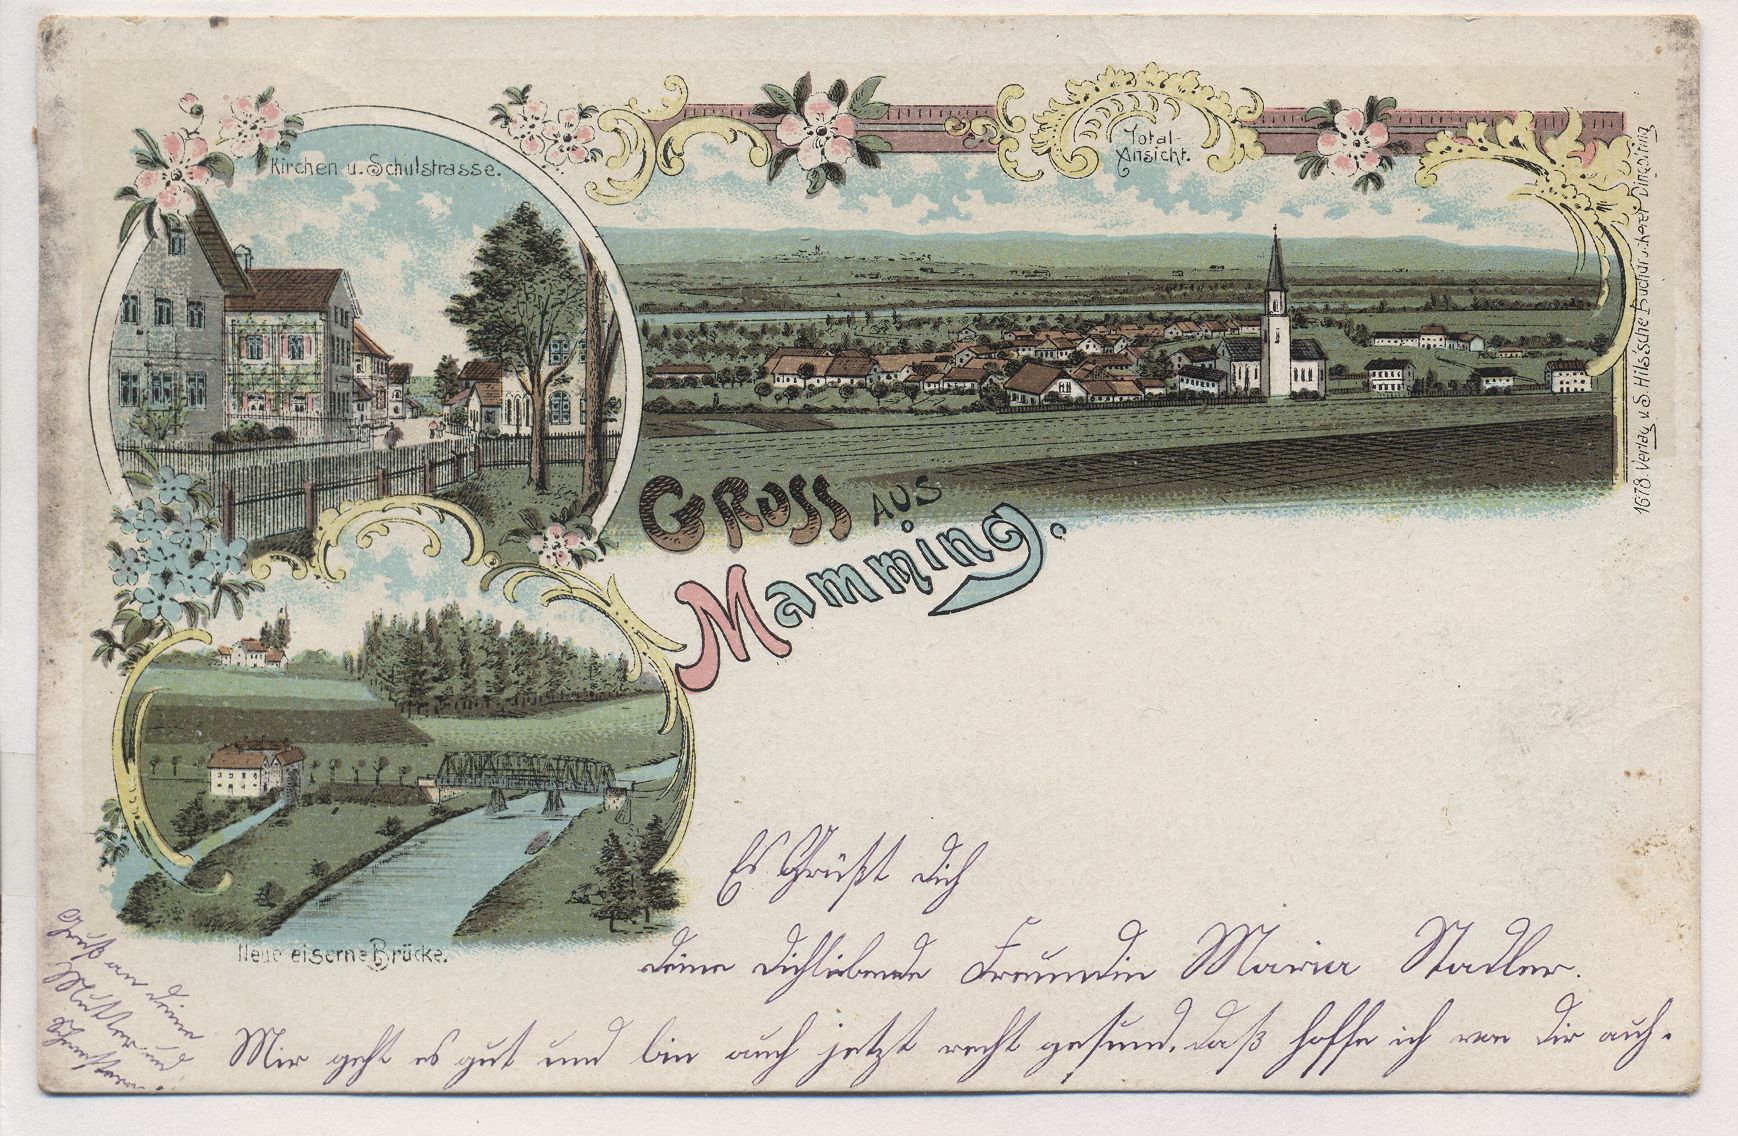 Kirchen u. Schulstrasse.
Total-
Ansicht.
1678. Verlag v. S. Hilssche Buchdruckerei Dingolfing
Gruss aus
Mamming.
Neue eiserne Brücke.
Es Grüßt dich
deine dichliebende Freundin Maria Stadler.
Mir geht es gut und bin auch jetzt recht gesund, daß hoffe ich von dir auch.
Gruß an deine
Mutter und
Schwestern.